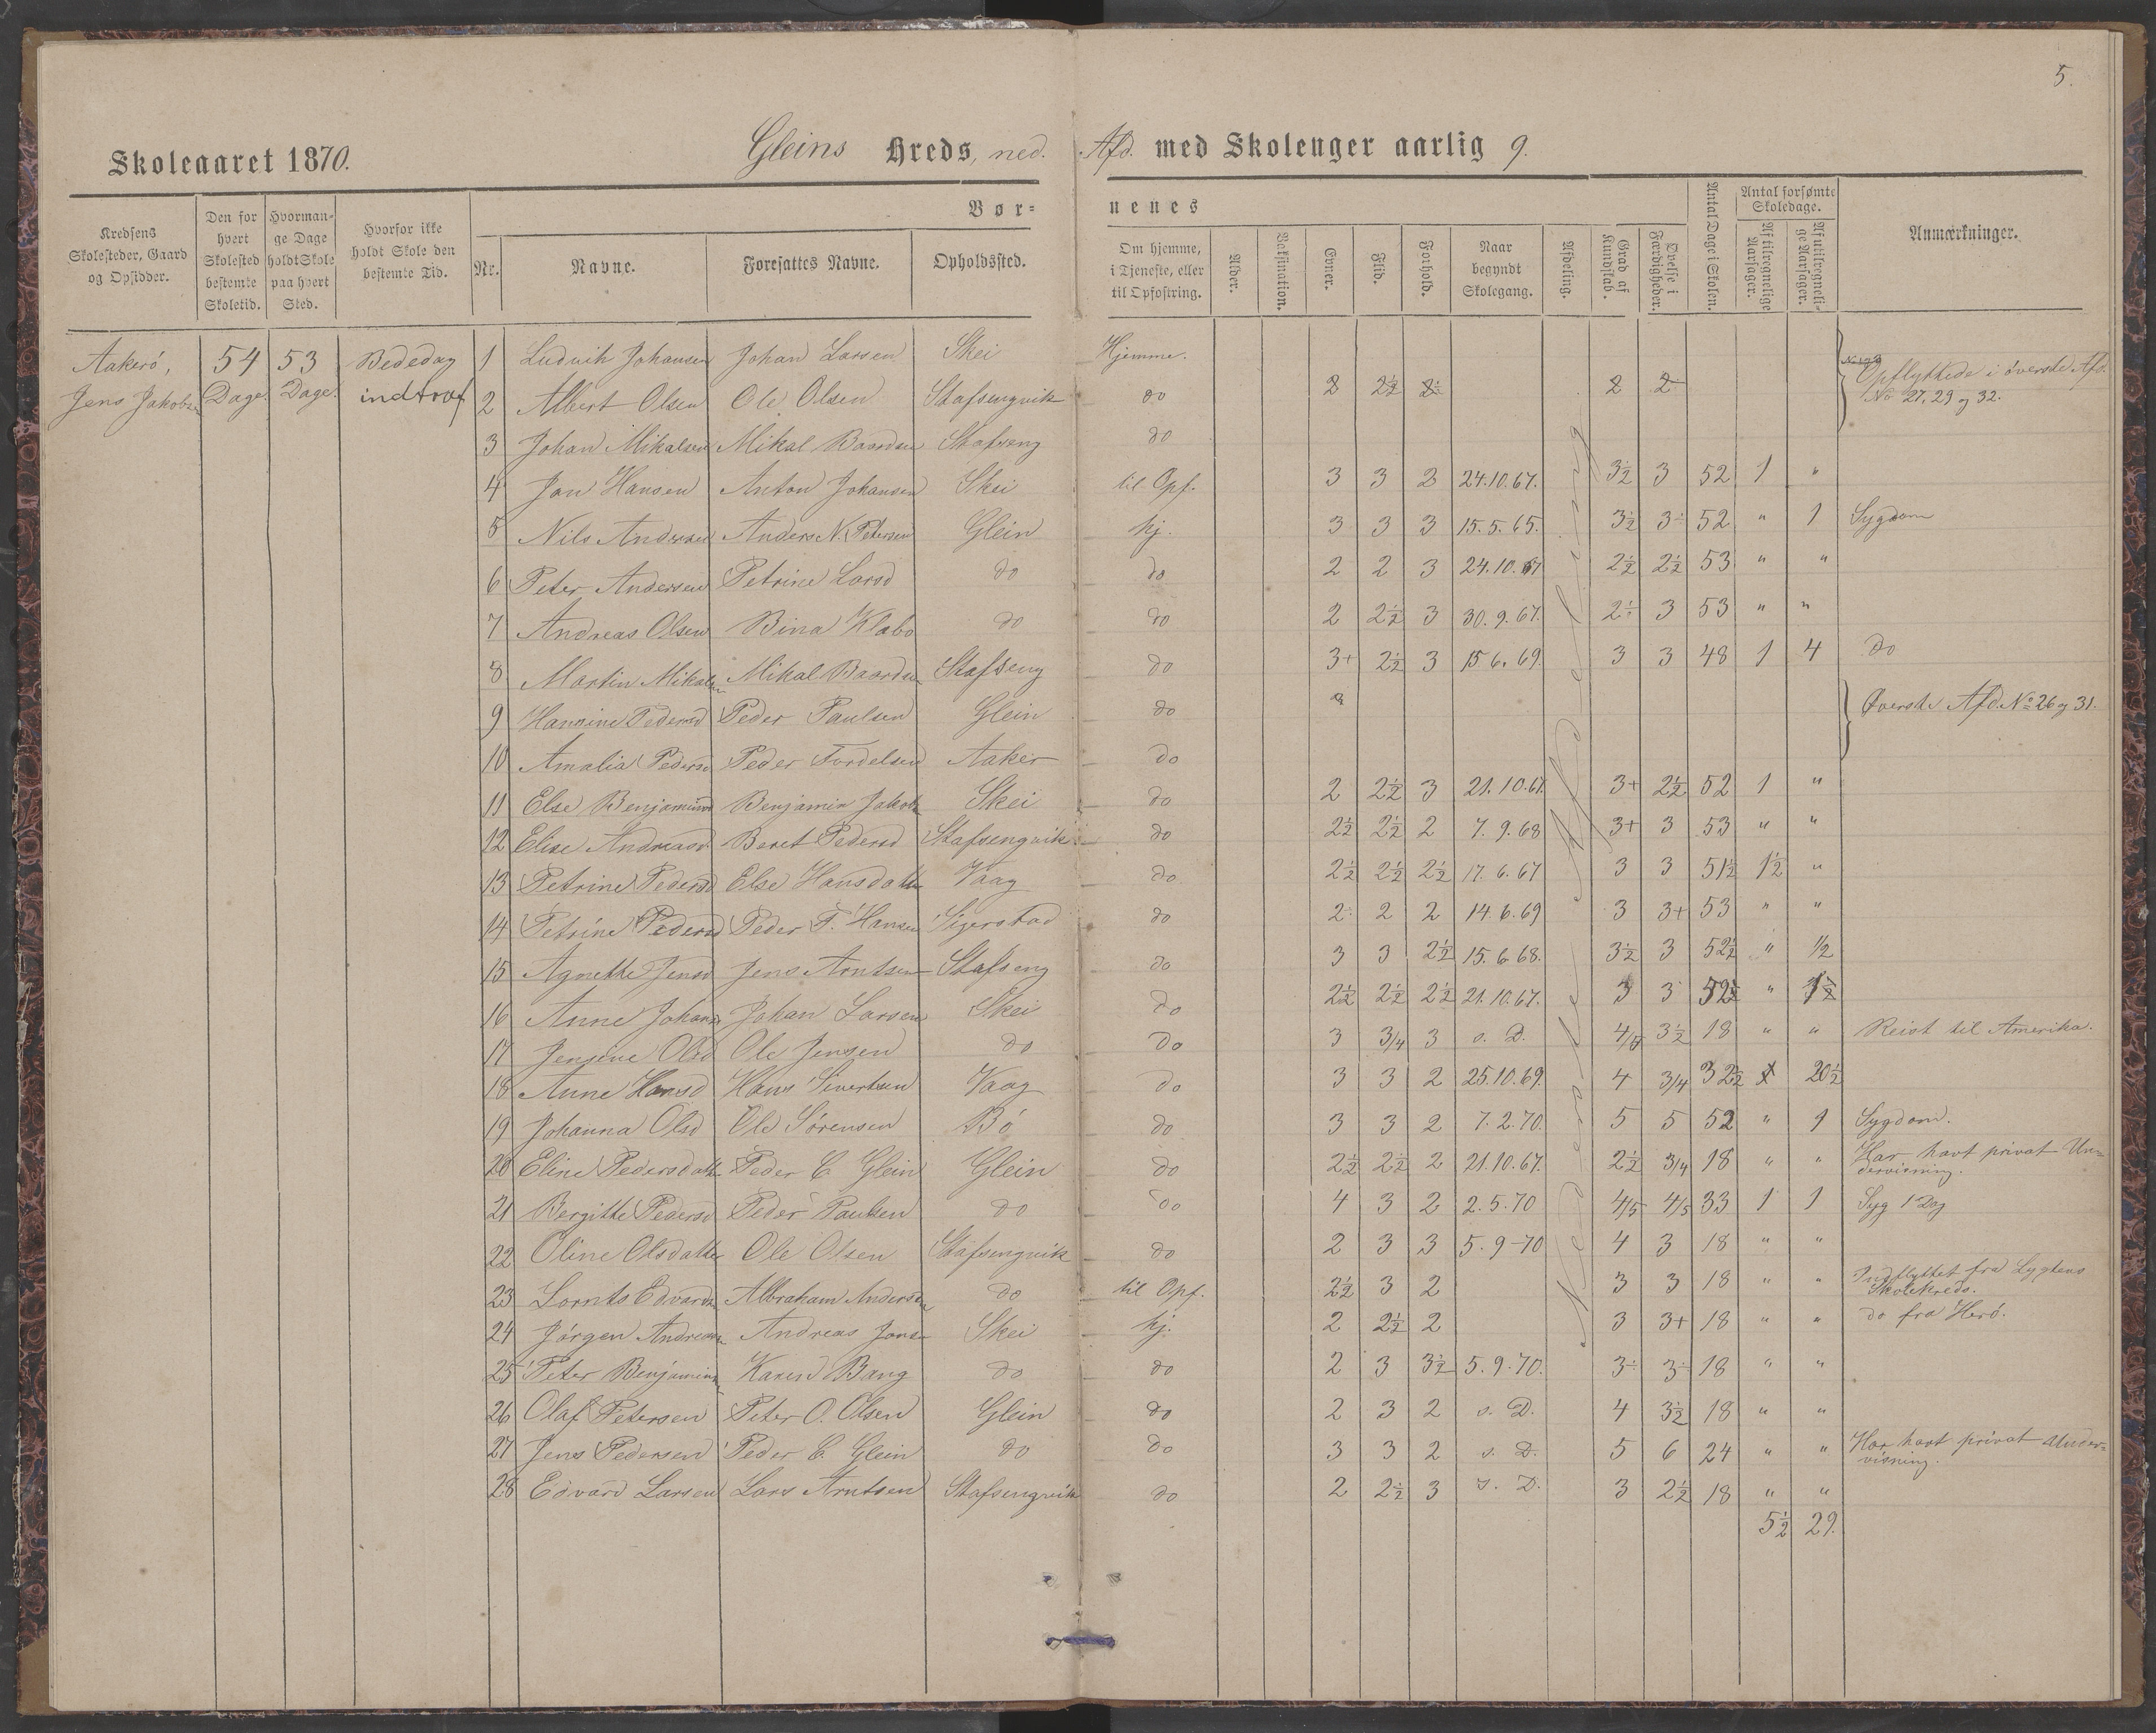 5.
Skoleaaret 1870. Gleins Kreds, ned. Afd. med Skolenger aarlig 9.
Kredsens Skolesteder, Gaard og Opsidder. Den for hvert Skolested bestemte Skoletid. Hvormange Dage holdt Skole paa hvert Sted. Hvorfor ikke holdt Skole den bestemte Tid. Børnenes
Nr. Navne. Foresattes Navne. Opholdssted. Om hjemme, i Tjeneste, eller til Opfostring. Alder. Vaksination. Evner. Flid. Forhold. Naar begyndt Skolegang. Afdeling. Grad af Kundskab. Øvelse i Færdigheder. Antal Dage i Skolen. Antal forsømte Skoledage. Af tilregnelige Aarsager. Af utilregnelige Aarsager. Anmærkninger.
Aakerö, 54 53 Bededag 1 Ludvik Johansen Johan Larsen Skei Hjemme.
Jens Jakobsen Dage Dage. indtraf 2 Albert Olsen Ole Olsen Stafsengvik do 2 2½ 2 2 2 Opflyttede i överste Afd. No 27, 29 og 32.
3 Johan Mikalsen Mikal Baardsen Stafseng do
4 Jon Hansen Anton Johansen Skei til Opf. 3 3 2 24.10.67. 3½ 3 52 1 "
5 Nils Andersen Anders N. Petersen Glein hj. 3 3 3 15.5.65. 3½ 3÷ 52 " 1 Sygdom
6 Peter Andersen Petrine Larsd do do 2 2 3 24.10.67 2½ 2½ 53 " "
7 Andreas Olsen Bina Klabo do do 2 2½ 3 30.9.67. 2÷ 3 53 " "
8 Martin Mikalsen Mikal Baardsen Stafseng do 3+ 2½ 3 15.6.69. 3 3 48 1 4 do
9 Hansine Pedersd Peder Paulsen Glein do Øverste Afd. No 26 og 31.
10 Amalia Pedersd Peder Tordelsen Aaker do
11 Else Benjaminsd Benjamin Jakobs Skei do 2 2½ 3 21.10.67. 3+ 2½ 52 1 "
12 Elise Andreasd. Beret Pedersd Stafsengvik do 2½ 2½ 2 7.9.68 3+ 3 53 " "
13 Petrine Pedersd Else Hansdatter Vaag do 2½ 2½ 2½ 17.6.67 3 3 51½ 1½ "
14 Petrine Pedersd Peder F. Hansen Sigerstad do 2÷ 2 2 14.6.69 3 3+ 53 " "
15 Agnethe Jensd Jens Arntsen Stafseng do 3 3 2½ 15.6.68. 3½ 3 52½ " 1/2
16 Anne Johansd Johan Larsen Skei do 2½ 2½ 2½ 21.10.67. 3 3 52½ " ½
17 Jensine Olsd Ole Jensen do Do 3 3/4 3 s. D. 4/5 3½ 18 " " Reist til Amerika.
18 Anne Hansd Hans Sivertsen Vaag do 3 3 2 25.10.69. 4 3/4 32½ " 20½
19 Johanna Olsd Ole Sörensen Bö do 3 3 2 7.2.70. 5 5 52 " 1 Sygdom.
20 Eline Pedersdatter Peder C. Glein Glein do 2½ 2½ 2 21.10.67. 2½ 3/4 18 " " Har havt privat Un=
dervisning.
21 Bergitte Pedersd Peder Paulsen do do 4 3 2 2.5.70 4/5 4/5 33 1 1 Syg 1 Dag
22 Oline Olsdatter Ole Olsen Stafsengvik do 2 3 3 5.9-70 4 3 18 " "
23 Lornts Edvards Albraham Andersen do til Opf. 2½ 3 2 3 3 18 " " Indflyttet fra Lygtens
Skolekreds.
24 Jörgen Andreasen Andreas Jons Skei hj. 2 2½ 2 3 3+ 18 " " do fra Herö.
25 Peter Benjamins Karen Bang do do 2 3 3½ 5.9.70. 3÷ 3÷ 18 " "
26 Olaf Petersen Peter O. Olsen Glein do 2 3 2 s. D. 4 3½ 18 " "
27 Jens Pedersen Peder C. Glein do do 3 3 2 s. D. 5 6 24 " " Har havt privat Under=
visning.
28 Edvard Larsen Lars Arntsen Stafsengvik do 2 2½ 3 s. D. 3 2½ 18 " "
5½ 29.
Nederste Afdeling